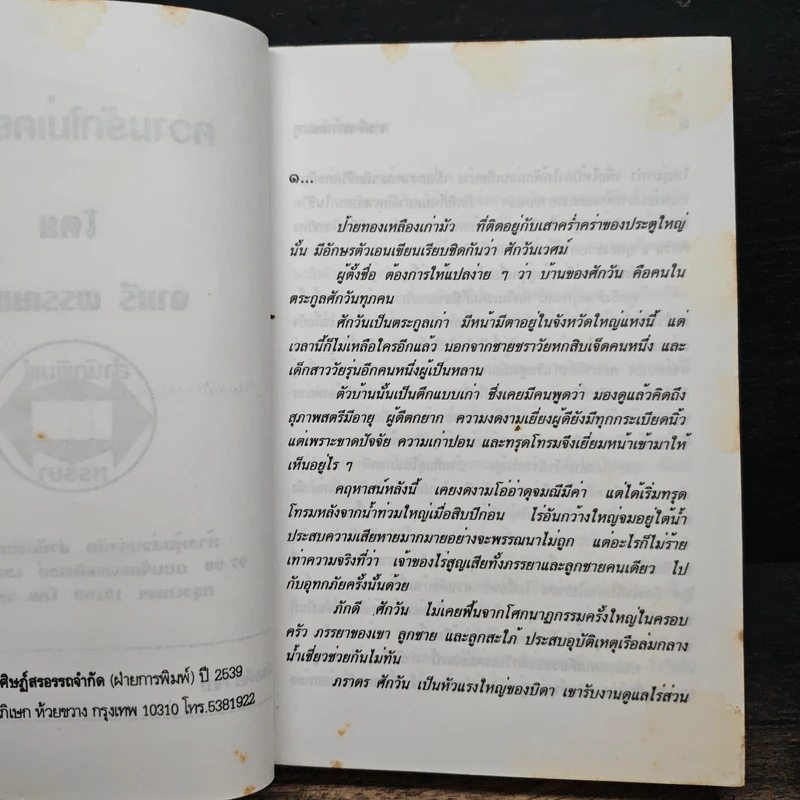 ศิษฎ์สรอรรถจำกัด (ฝ่ายการพิมพ์) ปี 2539
ภิเษก ห้วยขวาง กรุงเทพ 10310 โทร.5381922
๑...
ป้ายทองเหลืองเก่ามัว ที่ติดอยู่กับเสาคร่ำคร่าของประตูใหญ่
นั้น มีอักษรตัวเอนเขียนเรียบชิดกันว่า ศักวันเวศม์
ผู้ตั้งชื่อ ต้องการให้แปลง่าย ๆ ว่า บ้านของศักวัน คือคนใน
ตระกูลศักวันทุกคน
ศักวันเป็นตระกูลเก่า มีหน้ามีตาอยู่ในจังหวัดใหญ่แห่งนี้ แต่
เวลานี้ก็ไม่เหลือใครอีกแล้ว นอกจากชายชราวัยหกสิบเจ็ดคนหนึ่ง และ
เด็กสาววัยรุ่นอีกคนหนึ่งผู้เป็นหลาน
ตัวบ้านนั้นเป็นตึกแบบเก่า ซึ่งเคยมีคนพูดว่า มองดูแล้วคิดถึง
สุภาพสตรีมีอายุ ผู้ดีตกยาก ความงดงามเยี่ยงผู้ดียังมีทุกกระเบียดนิ้ว
แต่เพราะขาดปัจจัย ความเก่าปอน และทรุดโทรมจึงเยี่ยมหน้าเข้ามาให้
เห็นอยู่ไร ๆ
คฤหาสน์หลังนี้ เคยงดงามโอ่อ่าดุจมณีมีค่า แต่ได้เริ่มทรุด
โทรมหลังจากน้ำท่วมใหญ่เมื่อสิบปีก่อน ไร่อันกว้างใหญ่จมอยู่ใต้น้ำ
ประสบความเสียหายมากมายอย่างจะพรรณนาไม่ถูก แต่อะไรก็ไม่ร้าย
เท่าความจริงที่ว่า เจ้าของไร่สูญเสียทั้งภรรยาและลูกชายคนเดียว ไป
กับอุทกภัยครั้งนั้นด้วย
ภักดี ศักวัน ไม่เคยฟื้นจากโศกนาฏกรรมครั้งใหญ่ในครอบ
ครัว ภรรยาของเขา ลูกชาย และลูกสะใภ้ ประสบอุบัติเหตุเรือล่มกลาง
น้ำเชี่ยวช่วยกันไม่ทัน
ภราดร ศักวัน เป็นหัวแรงใหญ่ของบิดา เขารับงานดูแลไร่ส่วน